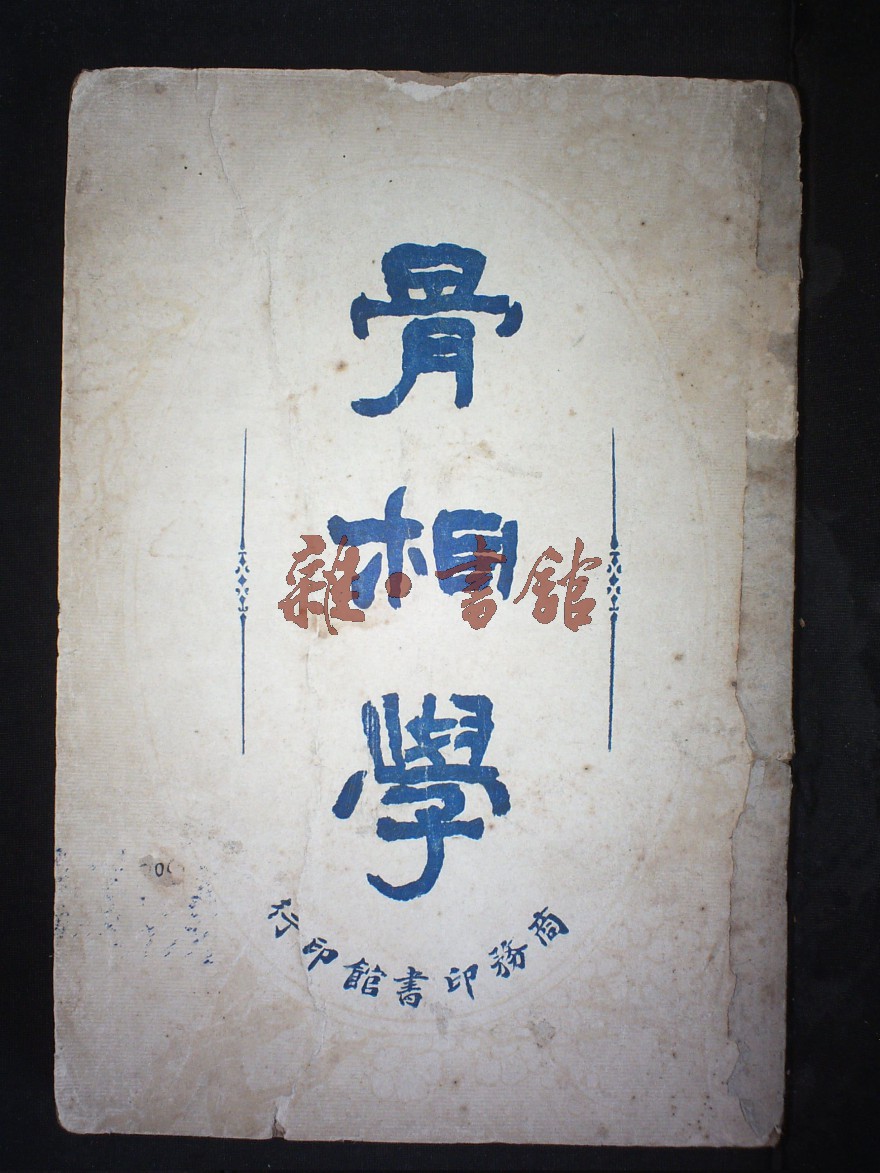 骨相學
雜·書館
商務印書館印行